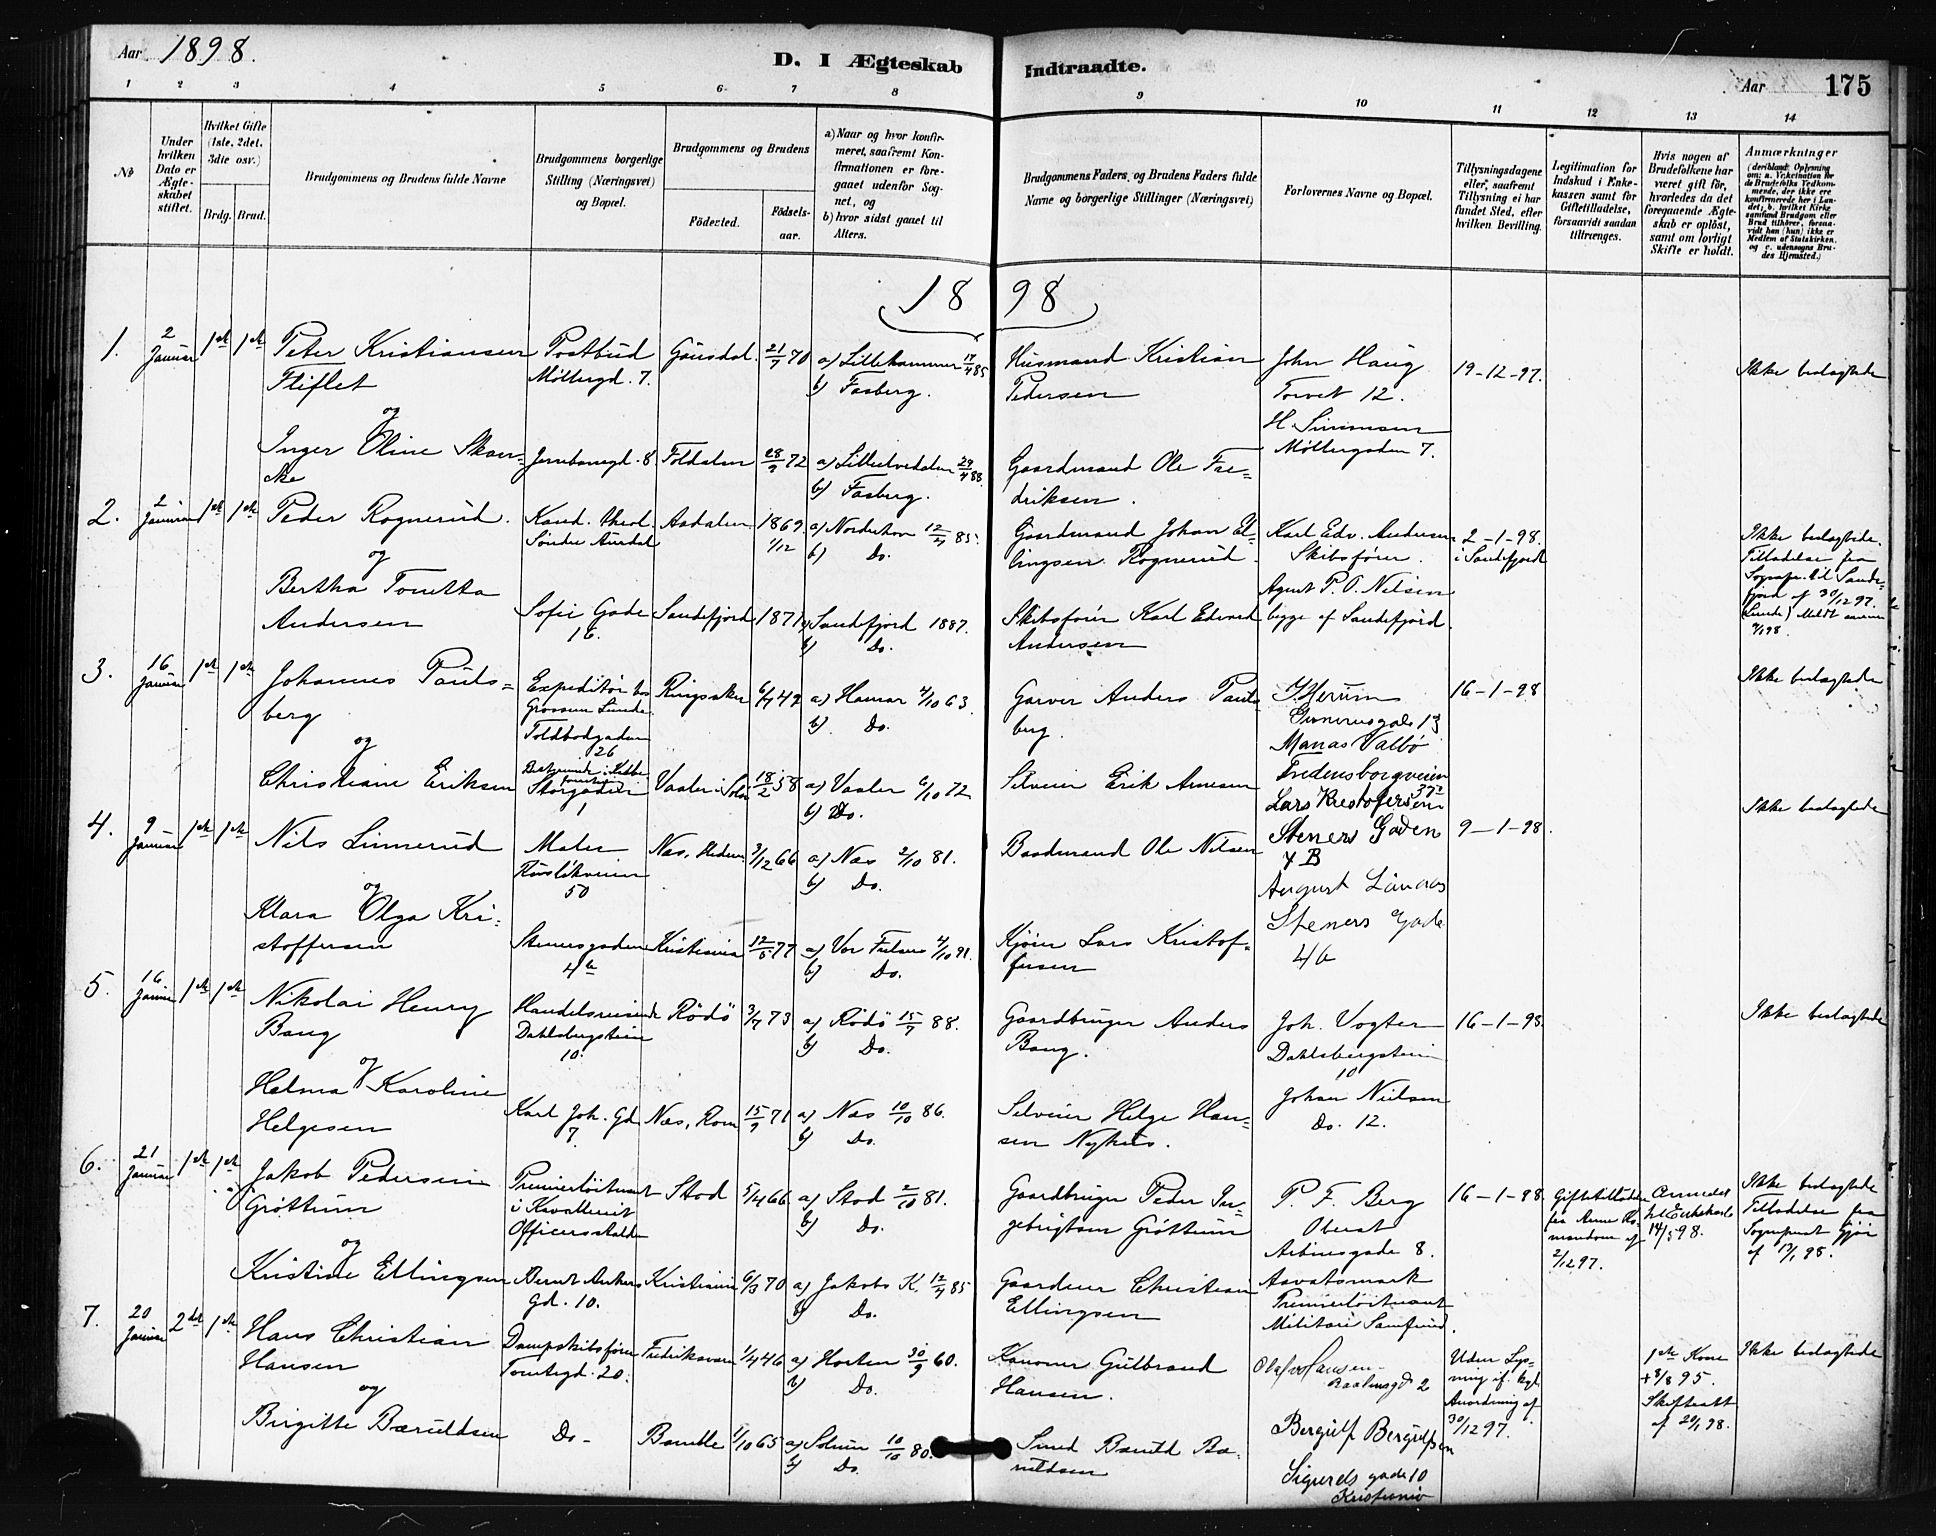 Aar 1898.
D. I Ægteskab Indtraadte.
Aar 175
1 2 3 4 5 6 7 8 9 10 11 12 13 14
No
Under hvilken Dato er Ægteskabet stiftet.
Hvilket Gifte (1ste, 2det, 3die osv.)
Brdg. Brud.
Brudgommens og Brudens fulde Navne
Brudgommens borgerlige Stilling (Næringsvei) og Bopæl.
Brudgommens og Brudens
Födested. Födsels-aar.
a) Naar og hvor konfirmeret, saafremt Konfirmationen er foregaaet udenfor Sognet, og
b) hvor sidst gaaet til Alters.
Brudgommens Faders, og Brudens Faders fulde Navne og borgerlige Stillinger (Næringsvei)
Forlovernes Navne og Bopæl.
Tillysningsdagene eller, saafremt Tillysning ei har fundet Sted, efter hvilken Bevilling.
Legitimation for Indskud i Enkekassen samt for Giftetilladelse, forsaavidt saadan tiltrænges.
Hvis nogen af Brudefolkene har været gift før, hvorledes da det foregaaende Ægteskab er opløst, samt om lovligt Skifte er holdt.
Anmærkninger
1898
1. 2 Januar 1ste 1ste
Peter Kristiansen
Fliflet
og
Inger Oline Skan-
cke
Postbud
Møllergd. 7.
Jernbanegd. 8
Gausdal. 21/7 70
Foldalen 28/9 72
a) Lillehammer 17/4 85
b) Faaberg.
a) Lilleelvedalen 29/4 88.
b) Faaberg.
Husmand Kristian
Pedersen
Gaardmand Ole Fre-
driksen.
John Haug
Torvet 12.
H. Simensen
Møllergaden 7.
19-12-97.
Ikke beslægtede
2. 2 Januar 1ste 1ste
Peder Rognerud.
og
Bertha Tonetta
Andersen
Kand. theol.
Søndre Aurdal
Sofie Gade
16.
Aadalen 1869. 1/12
Sandefjord 1871
a) Norderhov 12/4 85.
b) Do.
a) Sandefjord 1887.
b) Do.
Gaardmand Johan El-
lingsen Rognerud.
Skibsfører Karl Edvard
Andersen
Karl Edv. Andersen
Skibsfører.
Agent P. O. Nilsen
begge af Sandefjord.
2-1-98.
i Sandefjord
Ikke beslægtede.
Tilladelse fra
Sognepr. til Sande-
fjord af 30/12 97.
3. 16 Januar 1ste 1ste
Johannes Pauls-
berg
og
Christiane Eriksen
Expeditør hos
Grosserer Lunde.
Toldbodgaden
26
Storgaden
1
Ringsaker 6/7 42
Vaaler i Solør 18/2 58
a) Hamar 4/10 63.
b) Do.
a) Vaaler 6/10 72
b) Do.
Garver Anders Pauls-
berg.
Selveier Erik Arnesen
Manas Valbø
Fredensborgveien
37
16-1-98
Ikke beslægtede
4. 9 Januar 1ste 1ste
Nils Linnerud
og
Klara Olga Kri-
stoffersen
Maler
50
Stenersgaden
4b
Nes, Hedem 3/12 66
Kristiania 12/5 77
a) Nes 2/10 81.
b) Do.
a) Vor Frelsers 4/10 91.
b) Do.
Baadmand Ole Nilsen
Kjører Lars Kristof-
fersen
Lars Kristofersen
Steners Gaden
4 B
August Linnerud
Steners gade
4b
9-1-98.
Ikke beslægtede
5. 16 Januar 1ste 1ste
Nikolai Henry
Bang
og
Helma Karoline
Helgesen
Handelsreisende
Dahlsbergstien
10.
Karl Joh. Gd.
7.
Rödö 3/7 73
Nes, Rom 15/9 71
a) Rödö 15/7 88.
b) Do.
a) Nes 10/10 86.
b) Do.
Gaardbruger Anders
Bang.
Selveier Helge Han-
sen Nyhus.
Joh. Vogter
Dahlsbergstien
10
Johan Nielsen
Do. 12.
16-1-98.
Ikke beslægtede
6. 21 Januar 1ste 1ste
Jakob Pedersen
Gröttum
og
Kristine Ellingsen
Premierløitnant
i Kavalleriet
Bernt Ankers
Gd. 10.
Stod 5/4 66
Kristiania 6/3 70
a) Stod 2/10 81.
b) Do.
a) Jakobs K. 12/4 85
b) Do.
Gaardbruger Peder In-
gebrigtsen Gröttum
Gaardeier Christian
Ellingsen
P. F. Berg
Oberst
Arbinsgade 8.
Aavatsmark
Premierløitnant
Militære Samfund.
16-1-98
Giftetilladelse
2/12 97.
14/5 98.
Ikke beslægtede
Tilladelse fra
7. 20 Januar 2det 1ste
Hans Christian
Hansen
og
Birgitte Bæruldsen
Dampskibsfører
Tomtegd. 20.
Do-
Fredriksværn 1/4 46
Bamble 1/10 65
a) Horten 30/9 60.
b) Do.
a) Solum 10/10 80.
b) Do.
Kanoner Gulbrand
Hansen.
Smed Bæruld Bæ-
ruldsen
Olaf Hansen
Bergulf Bergulfsen
Sigurds gade 10
Kristiania
Uden Lys-
ning if. kgl.
Anordning af
30/12 97.
1ste Kone
+ 8/8 95.
Skifteatt
af 20/1 98.
Ikke beslægtede